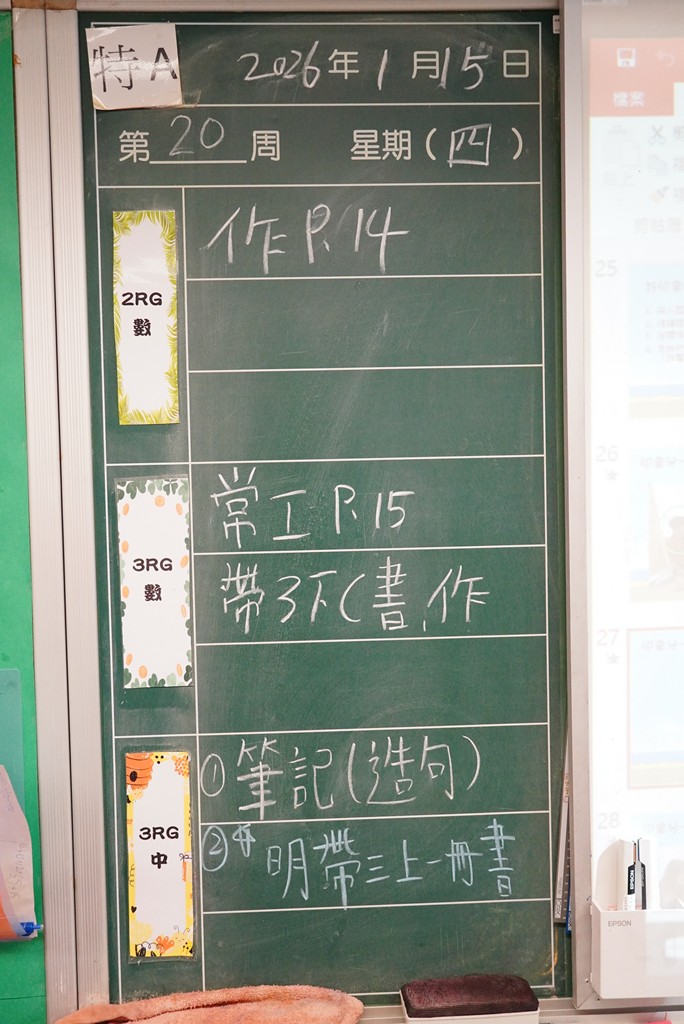 特A
2026年1月15日
第20周 星期(四)
2RG
數
作 P.14
3RG
數
常工 P.15
帶3下C(書,作
3RG
中
①筆記(造句)
②*明帶三上一冊書
檔案
25
26
27
28
EPSON
EPSON